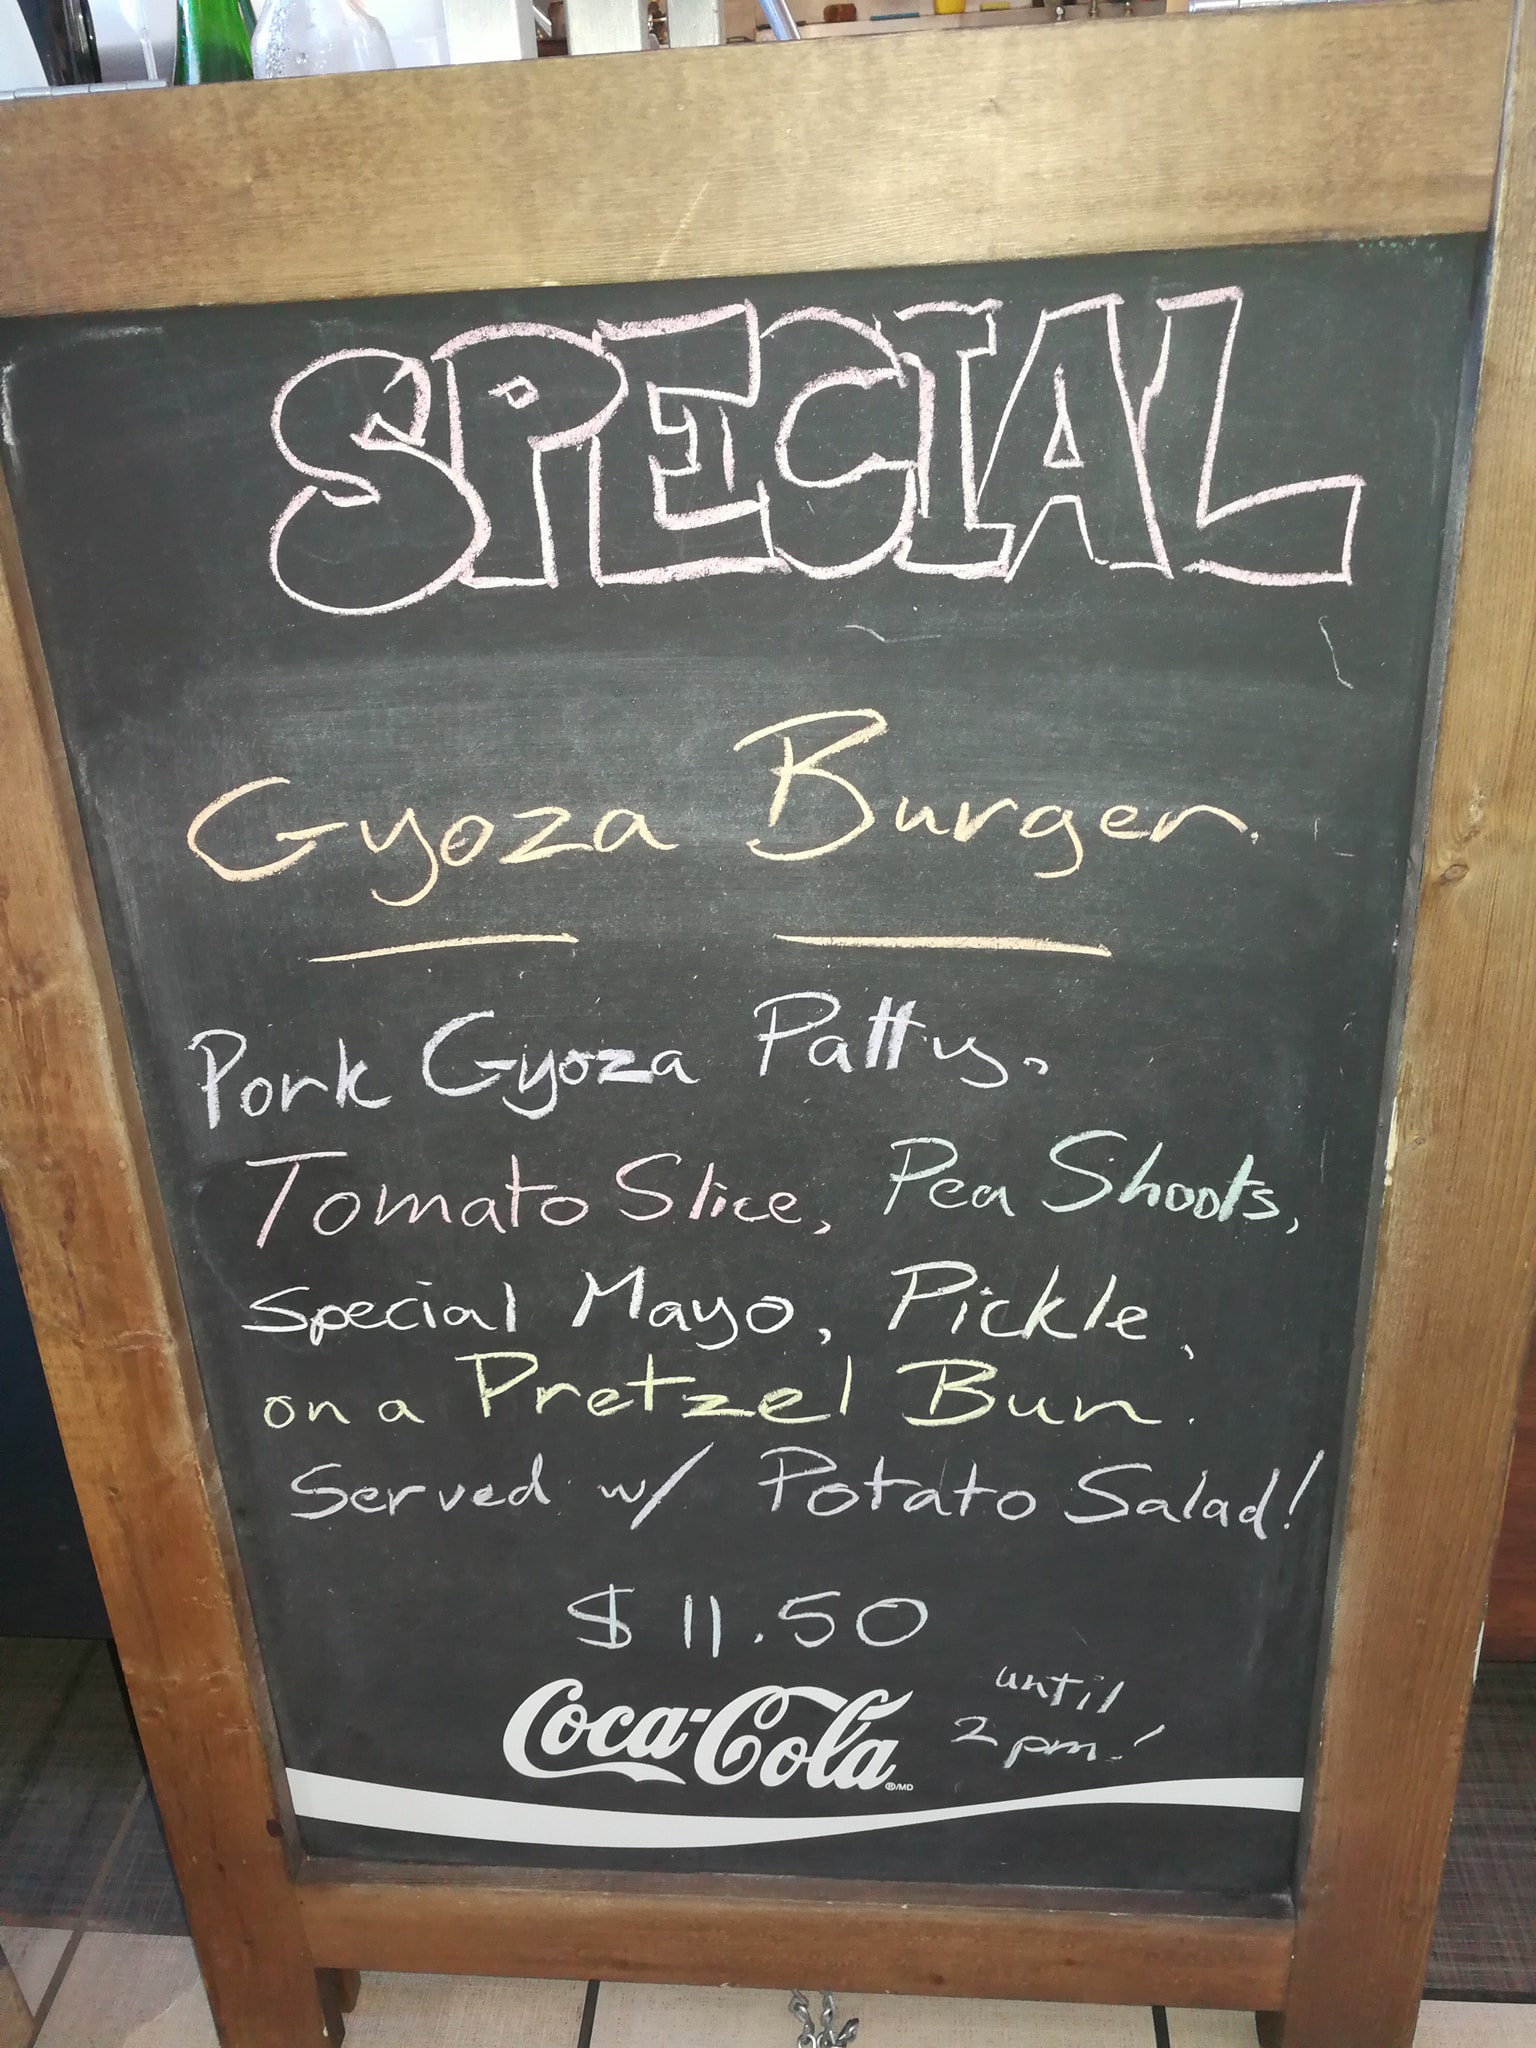 SPECIAL
Gyoza Burger.
Pork Gyoza Patty,
Tomato Slice, Pea Shoots,
Special Mayo, Pickle,
on a Pretzel Bun.
Served w/ Potato Salad!
$11.50
until
2pm!
Coca-Cola ®/MD